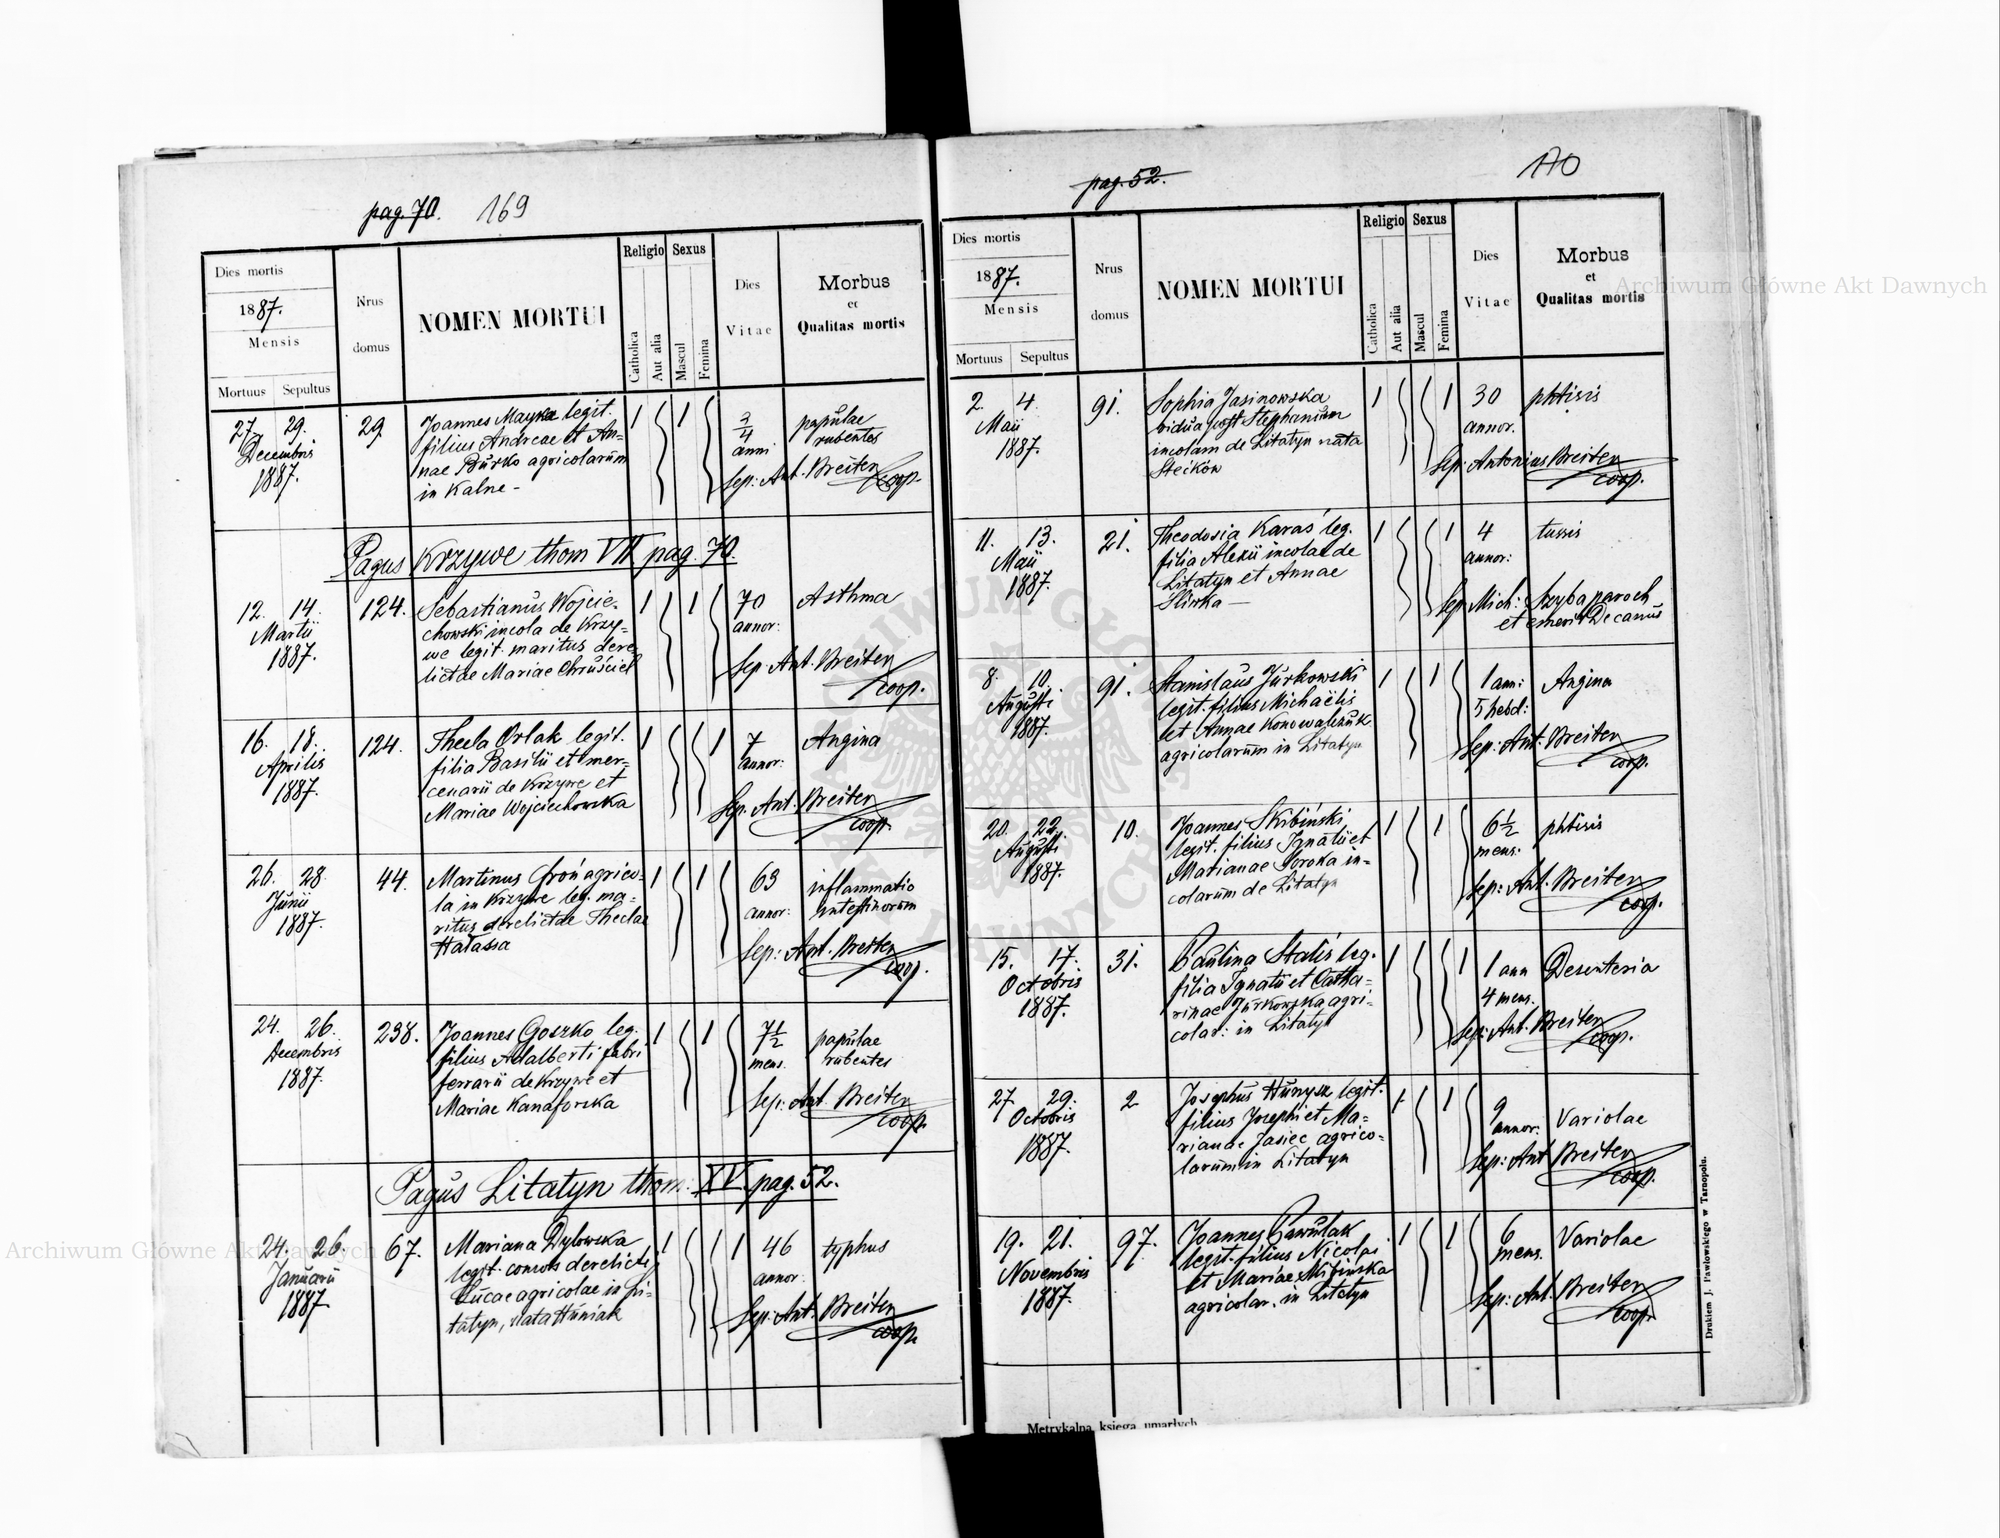 pag. 70. 169
Dies mortis
1887.
Mensis
Mortuus Sepultus
Nrus
domus
NOMEN MORTUI
Religio Sexus
Catholica
Aut alia
Mascul
Femina
Dies
Vitae
Morbus
et
Qualitas mortis
27. 29.
Decembris
1887.
29
Joannes Mayka legit.
filius Andreae et An=
nae Burko agricolarum
in Kalne -
1 1
3/4
anni
papulae
rubentes
Sep: Ant. Breiter
coop.
Pagus Krzywe thom VII pag. 70.
12. 14.
Martii
1887.
124.
Sebastianus Wojcie-
chowski incola de Krzy=
we legit. maritus dere
lictae Mariae Chruściel
1 1
70
annor:
Asthma
Sep: Ant. Breiter
coop.
16. 18.
Aprilis
1887.
124.
Thecla Orlak legit.
filia Basilii et mer-
cenarii de Krzywe et
Mariae Wojciechowska
1 1
7
annor:
Angina
Sep. Ant. Breiter
coop.
26. 28.
Junii
1887.
44.
Martinus Groń agrico-
la in Krzywe leg. ma=
ritus derelictae Theclae
Hałassa
1 1
63
annor:
inflammatio
intestinorum
Sep: Ant. Breiter
coop.
24. 26.
Decembris
1887.
238.
Joannes Goszko leg.
filius Adalberti fabri
ferrarii de Krzywe et
Mariae Kanaforska
1 1
7 1/2
mens.
papulae
rubentes
Sep: Ant. Breiter
coop.
Pagus Litatyn thom: XV. pag. 52.
24. 26.
Januarii
1887.
67.
Mariana Dylowska
legit. consors derelicti
Lucae agricolae in Li-
tatyn, nata Huniak
1 1
46
annor.
typhus
Sep: Ant. Breiter
coop.
pag. 52.
170
Dies mortis
1887.
Mensis
Mortuus Sepultus
Nrus
domus
NOMEN MORTUI
Religio Sexus
Catholica
Aut alia
Mascul
Femina
Dies
Vitae
Morbus
et
Qualitas mortis
2. 4.
Maii
1887.
91.
Sophia Jasinowska
vidua post Stephanum
incolam de Litatyn nata
Stećków
1 1
30
annor.
phtisis
Sep: Antonius Breiter
coop.
11. 13.
Maii
1887.
21.
Theodosia Karaś leg.
filia Alexii incolae de
Litatyn et Annae
Śliwka —
1 1
4
annor:
tussis
Sep: Mich: Szyba paroch
et emerit Decanus
8. 10.
Augusti
1887.
91.
Stanislaus Jurkowski
legit. filius Michaëlis
et Annae Konowalczuk
agricolarum in Litatyn
1 1
1 ann:
5 hebd:
Angina
Sep: Ant. Breiter
coop.
20. 22.
Augusti
1887.
10.
Joannes Skibiński
legit. filius Ignatii et
Marianae Soroka in=
colarum de Litatyn
1 1
6 1/2
mens:
phtisis
Sep: Ant. Breiter
coop.
15. 17.
Octobris
1887.
31.
Paulina Staliś leg.
filia Ignatii et Catha=
rinae Jurkowska agri=
colar: in Litatyn
1 1
1 ann
4 mens.
Desenteria
Sep: Ant. Breiter
coop.
27. 29.
Octobris
1887.
2
Josephus Hunysz legit.
filius Josephi et Ma=
rianae Jasiec agrico=
larum in Litatyn
1 1
9
annor.
Variolae
Sep: Ant Breiter
coop.
19. 21.
Novembris
1887.
97.
Joannes Gawulak
legit. filius Nicolai
et Mariae Mitińska
agricolar. in Litatyn
1 1
6
mens.
Variolae
Sep: Ant. Breiter
coop.
Drukiem J. Pawłowskiego w Tarnopolu.
Metrykalna księga umarłych
Archiwum Główne Akt Dawnych
Archiwum Główne Akt Dawnych
ARCHIWUM GŁÓWNE AKT DAWNYCH